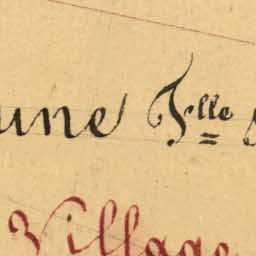 une F.lle
Village